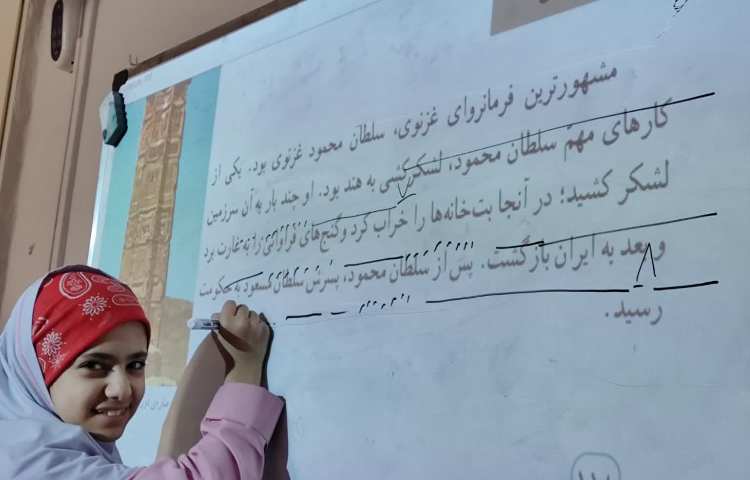 مشهورترین فرمانروای غزنوی، سلطان محمود غزنوی بود. یکی از
کارهای مهمّ سلطان محمود، لشکرکشی به هند بود. او چند بار به آن سرزمین
لشکر کشید؛ در آنجا بت‌خانه‌ها را خراب کرد و گنج‌های فراوانی را به غارت برد
و بعد به ایران بازگشت. پس از سلطان محمود، پسرش سلطان مسعود به حکومت
رسید.